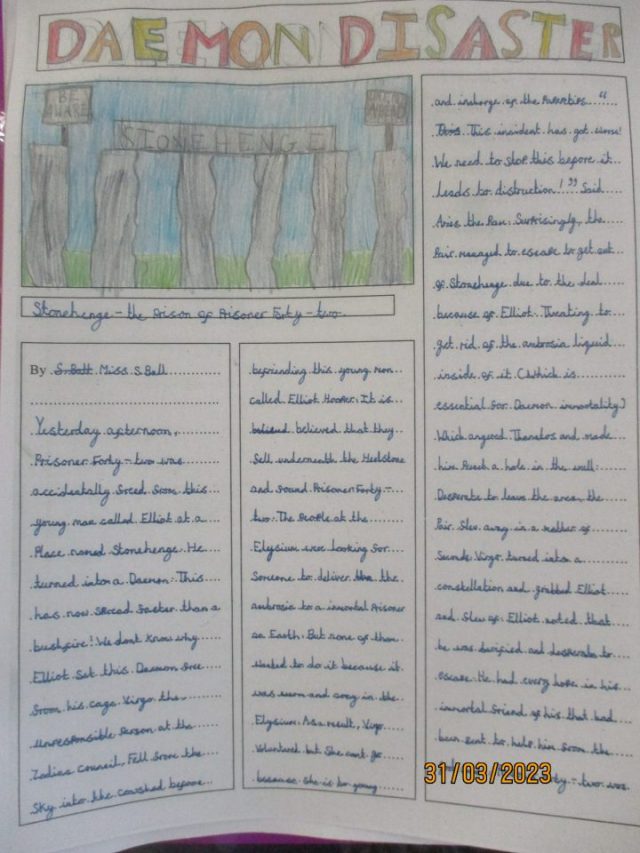 DAEMON DISASTER
BE AWARE
AHEAD
STONEHENGE
Stonehenge - the Prison of Prisoner Forty - two
By S.Batt Miss S Ball
Yesterday afternoon,
Prisoner Forty - two was
accidentally freed from this
young man called Elliot at a
Place named Stonehenge. He
turned into a Daemon. This
has now spread faster than a
bushfire! We dont know why
Elliot set this Daemon free
from his cage. Virgo the
unresponsible Person at the
Zodiac Council, Fell from the
sky into the cowshed before
befriending this young man
called Elliot Hooper. It is
believed that they
fell underneath the Heelstone
and found Prisoner Forty -
two. The People at the
Elysium were looking for
Someone to deliver the
ambrosia to a immortal Prisoner
on Earth. But none of them
wanted to do it because it
was warm and cosy in the
Elysium. As a result, Virgo
Volunteered but she cant go
because she is to young
and incharge of the
"This incident has got worse!
We need to stop this before it
leads to distruction!" Said
Aries the Ram. Surprisingly, the
Pair managed to escape to get out
of Stonehenge due to the deal
because of Elliot. Treating to
get rid of the ambrosia liquid
inside of it (Which is
essential for Daemon immortality)
Which angered Thanatos and made
him Punch a hole in the wall.
Desperate to leave the area, the
Pair flew away in a matter of
Seconds. Virgo turned into a
constellation and grabbed Elliot
and flew of. Elliot noted that
he was terrified and desperate to
escape. He had every hope in his
immortal friend of his that had
been sent to help him from the
two was
31/03/2023